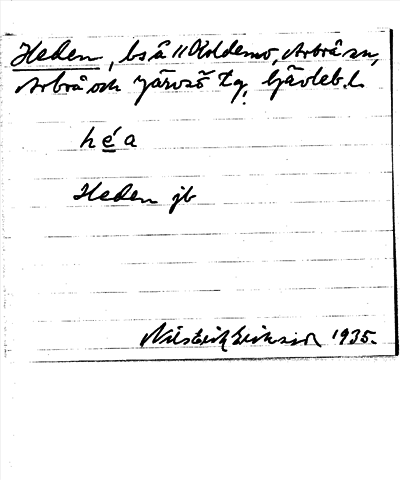 Heden, bs å Koldemo, Arbrå sn,
Arbrå och Järvsö tg. Gävleb. l.
h é a
Heden jb
Nils Erik Eriksson 1935.